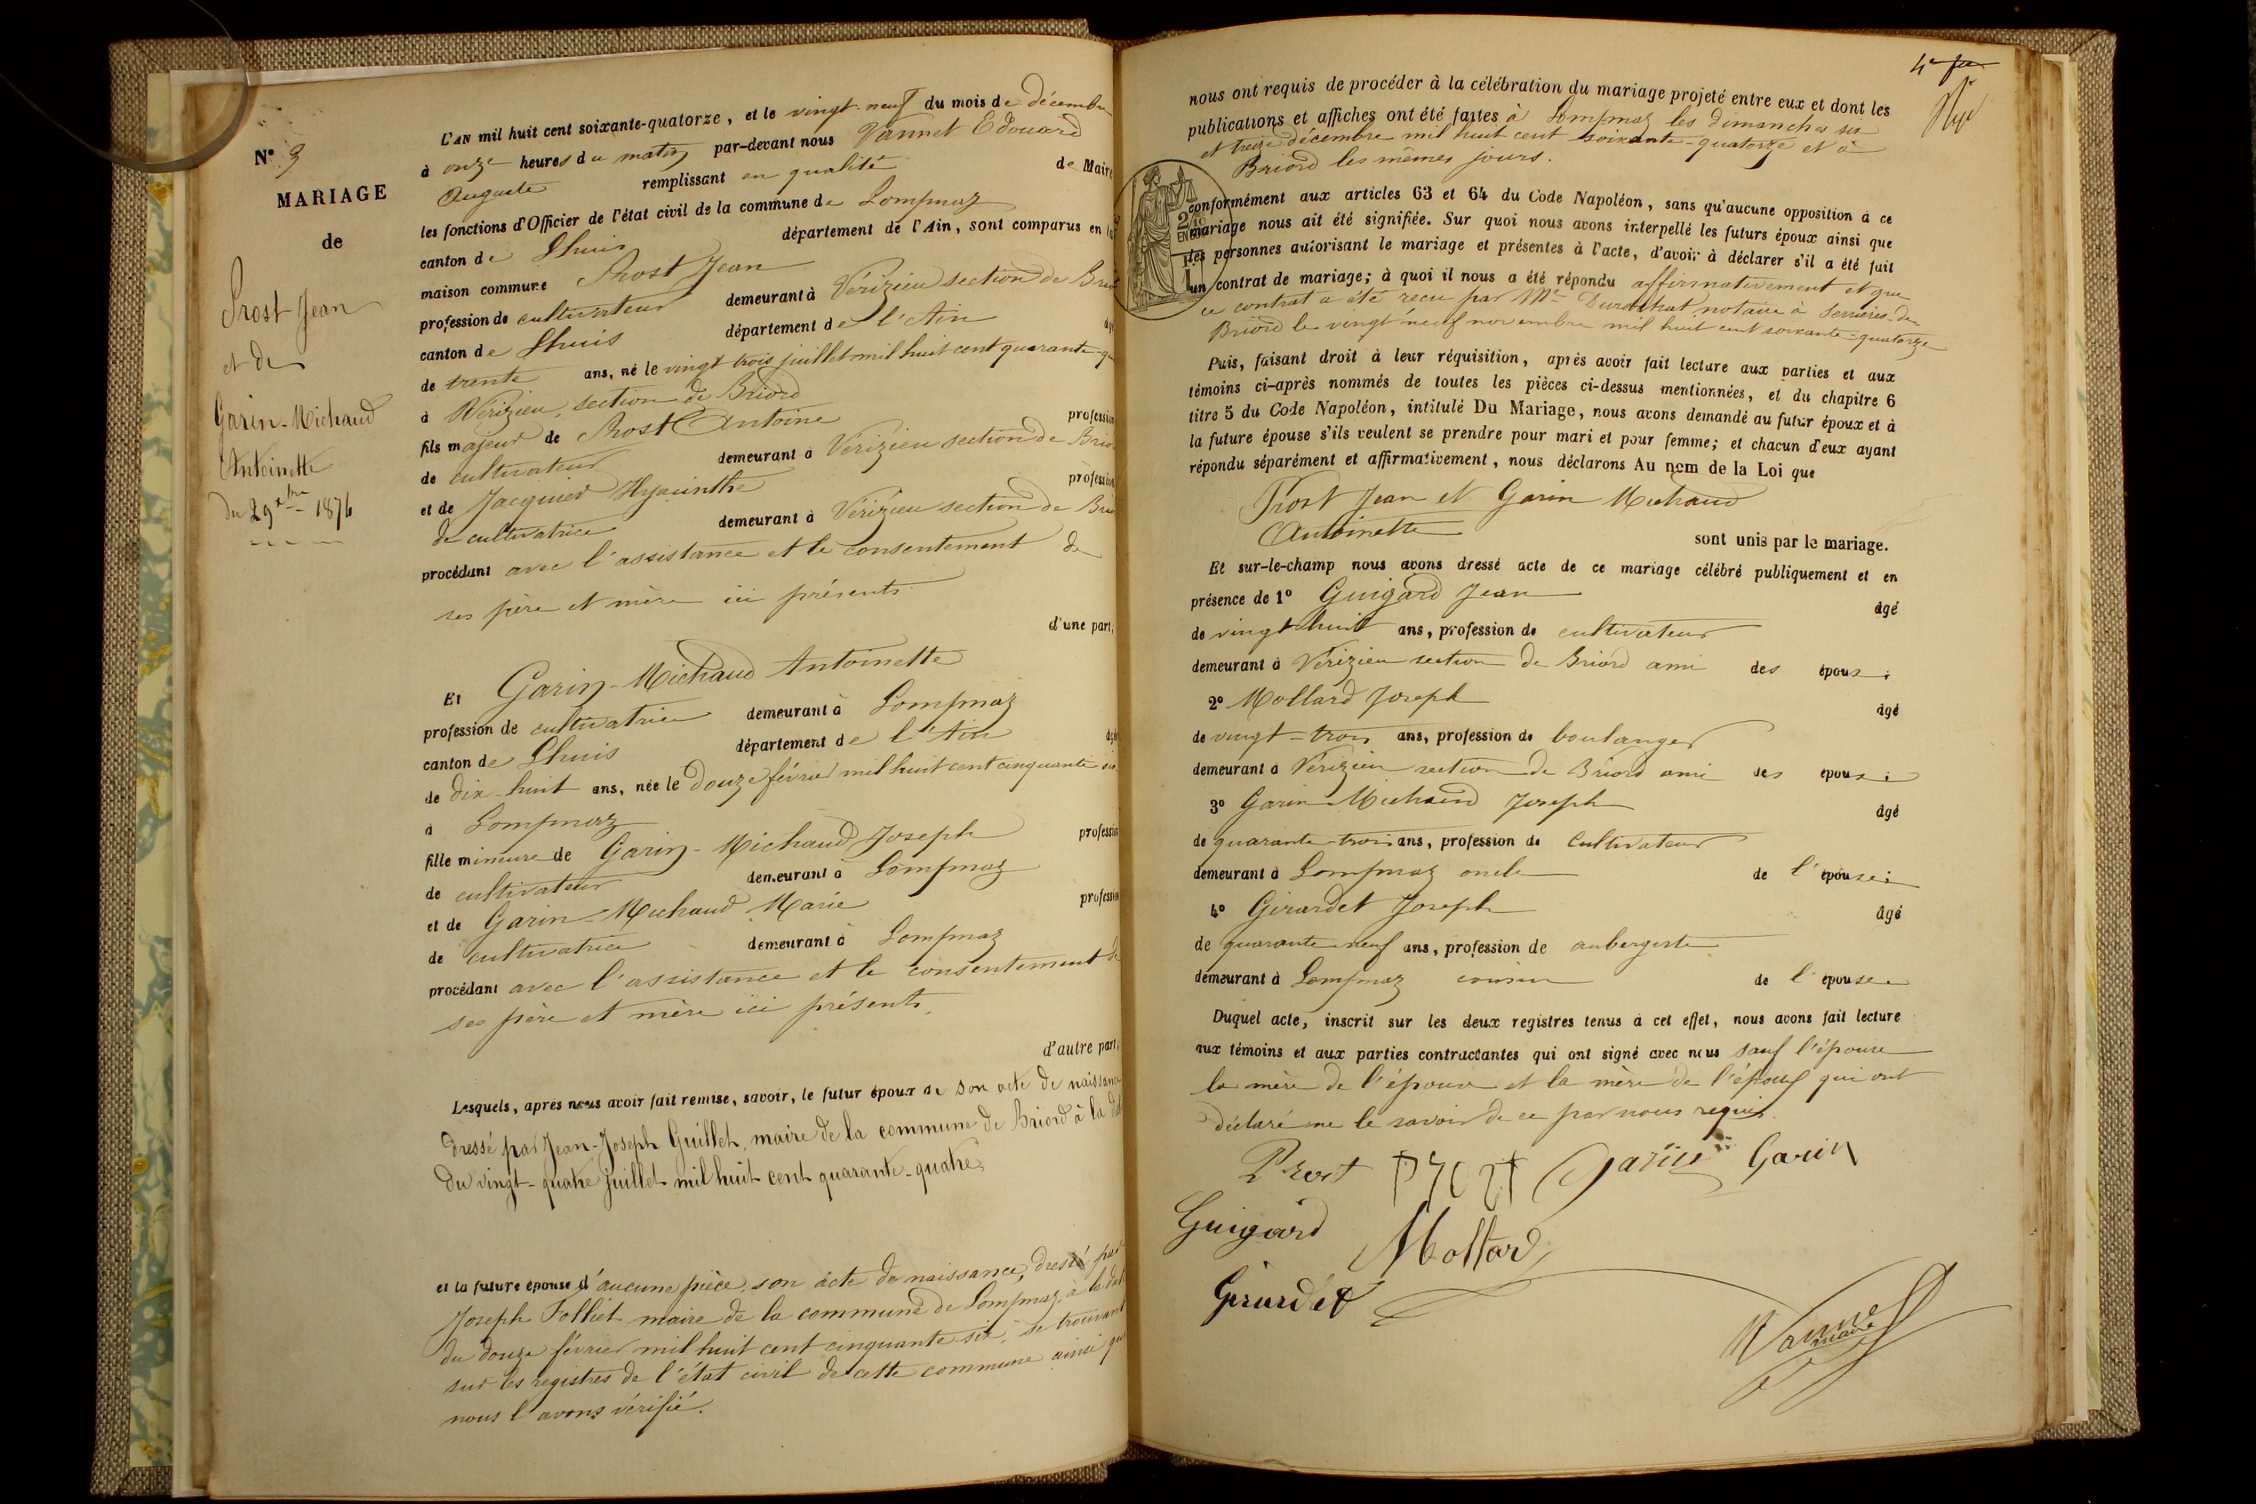 N° 9
MARIAGE
de
Prost Jean
et de
Garin-Michaud
Antoinette
du 29 xbre 1874
L'AN mil huit cent soixante-quatorze, et le vingt-neuf du mois de décembre
à onze heures du matin par-devant nous Vannet Edouard
Auguste remplissant en qualité de Maire
les fonctions d'Officier de l'état civil de la commune de Lompnaz
canton de Lhuis département de l'Ain, sont comparus en la
maison commune Prost Jean
profession de cultivateur demeurant à Vérizieu section de Briord
canton de Lhuis département de l'Ain âgé
de trente ans, né le vingt trois juillet mil huit cent quarante-qu
à Vérizieu, section de Briord
fils majeur de Prost Antoine profession
de cultivateur demeurant à Vérizieu section de Briord
et de Jacquier Hyacinthe profession
de cultivatrice demeurant à Vérizieu section de Briord
procédant avec l'assistance et le consentement de
ses père et mère ici présents
d'une part,
Et Garin-Michaud Antoinette
profession de cultivatrice demeurant à Lompnaz
canton de Lhuis département de l'Ain âgée
de dix-huit ans, née le douze février mil huit cent cinquante six
à Lompnaz
fille mineure de Garin-Michaud Joseph profession
de cultivateur demeurant à Lompnaz
et de Garin-Michaud Marie profession
de cultivatrice demeurant à Lompnaz
procédant avec l'assistance et le consentement de
ses père et mère ici présents.
d'autre part,
Lesquels, après nous avoir fait remise, savoir, le futur époux de son acte de naissance
dressé par Jean-Joseph Guillet, maire de la commune de Briord à la date
du vingt-quatre juillet mil huit cent quarante-quatre
et la future épouse d'aucune pièce, son acte de naissance, dressé par
Joseph Folliet maire de la commune de Lompnaz, à la date
du douze février mil huit cent cinquante six, se trouvant
sur les registres de l'état civil de cette commune ainsi que
nous l'avons vérifié.
nous ont requis de procéder à la célébration du mariage projeté entre eux et dont les
publications et affiches ont été faites à Lompnaz les dimanches six
et treize décembre mil huit cent soixante-quatorze et à
Briord les mêmes jours.
conformément aux articles 63 et 64 du Code Napoléon, sans qu'aucune opposition à ce
mariage nous ait été signifiée. Sur quoi nous avons interpellé les futurs époux ainsi que
les personnes autorisant le mariage et présentes à l'acte, d'avoir à déclarer s'il a été fait
un contrat de mariage; à quoi il nous a été répondu affirmativement et que
ce contrat a été reçu par Me notaire à Serrières-de-
Briord le vingt neuf novembre mil huit cent soixante-quatorze
Puis, faisant droit à leur réquisition, après avoir fait lecture aux parties et aux
témoins ci-après nommés de toutes les pièces ci-dessus mentionnées, et du chapitre 6
titre 5 du Code Napoléon, intitulé Du Mariage, nous avons demandé au futur époux et à
la future épouse s'ils veulent se prendre pour mari et pour femme; et chacun d'eux ayant
répondu séparément et affirmativement, nous déclarons Au nom de la Loi que
Prost Jean et Garin Michaud
Antoinette
sont unis par le mariage.
Et sur-le-champ nous avons dressé acte de ce mariage célébré publiquement et en
présence de 1° Guigard Jean âgé
de vingt huit ans, profession de cultivateur
demeurant à Vérizieu section de Briord ami des époux;
2° Mollard Joseph âgé
de vingt-trois ans, profession de boulanger
demeurant à Vérizieu section de Briord ami des époux;
3° Garin Michaud Joseph âgé
de quarante trois ans, profession de cultivateur
demeurant à Lompnaz oncle de l'épouse;
4° Girardet Joseph âgé
de quarante neuf ans, profession de aubergiste
demeurant à Lompnaz cousin de l'épouse
Duquel acte, inscrit sur les deux registres tenus à cet effet, nous avons fait lecture
aux témoins et aux parties contractantes qui ont signé avec nous sauf l'épouse
la mère de l'épouse et la mère de l'époux qui ont
déclaré ne le savoir de ce par nous requis.
Prost Prost Garin Garin
Guigard Mollard
Girardet
Vannet
maire